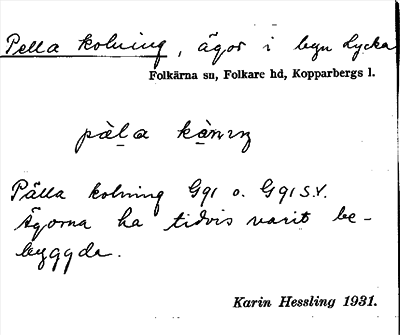 Pella kolning, ägor i byn Lycka
Folkärna sn, Folkare hd, Kopparbergs l.
pàl̲a kànıŋ
Pälla kolning G91 o. G91 S.V.
Ägorna ha tidvis varit be-
byggda.
Karin Hessling 1931.